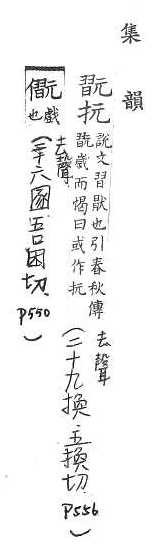 集韻
翫抏
說文習猒也引春秋傳
翫歲而愒日或作抏
去聲
(二十九換.五換切.
P556)
戲
也
去聲
(二十六圂吾困切.
P550)